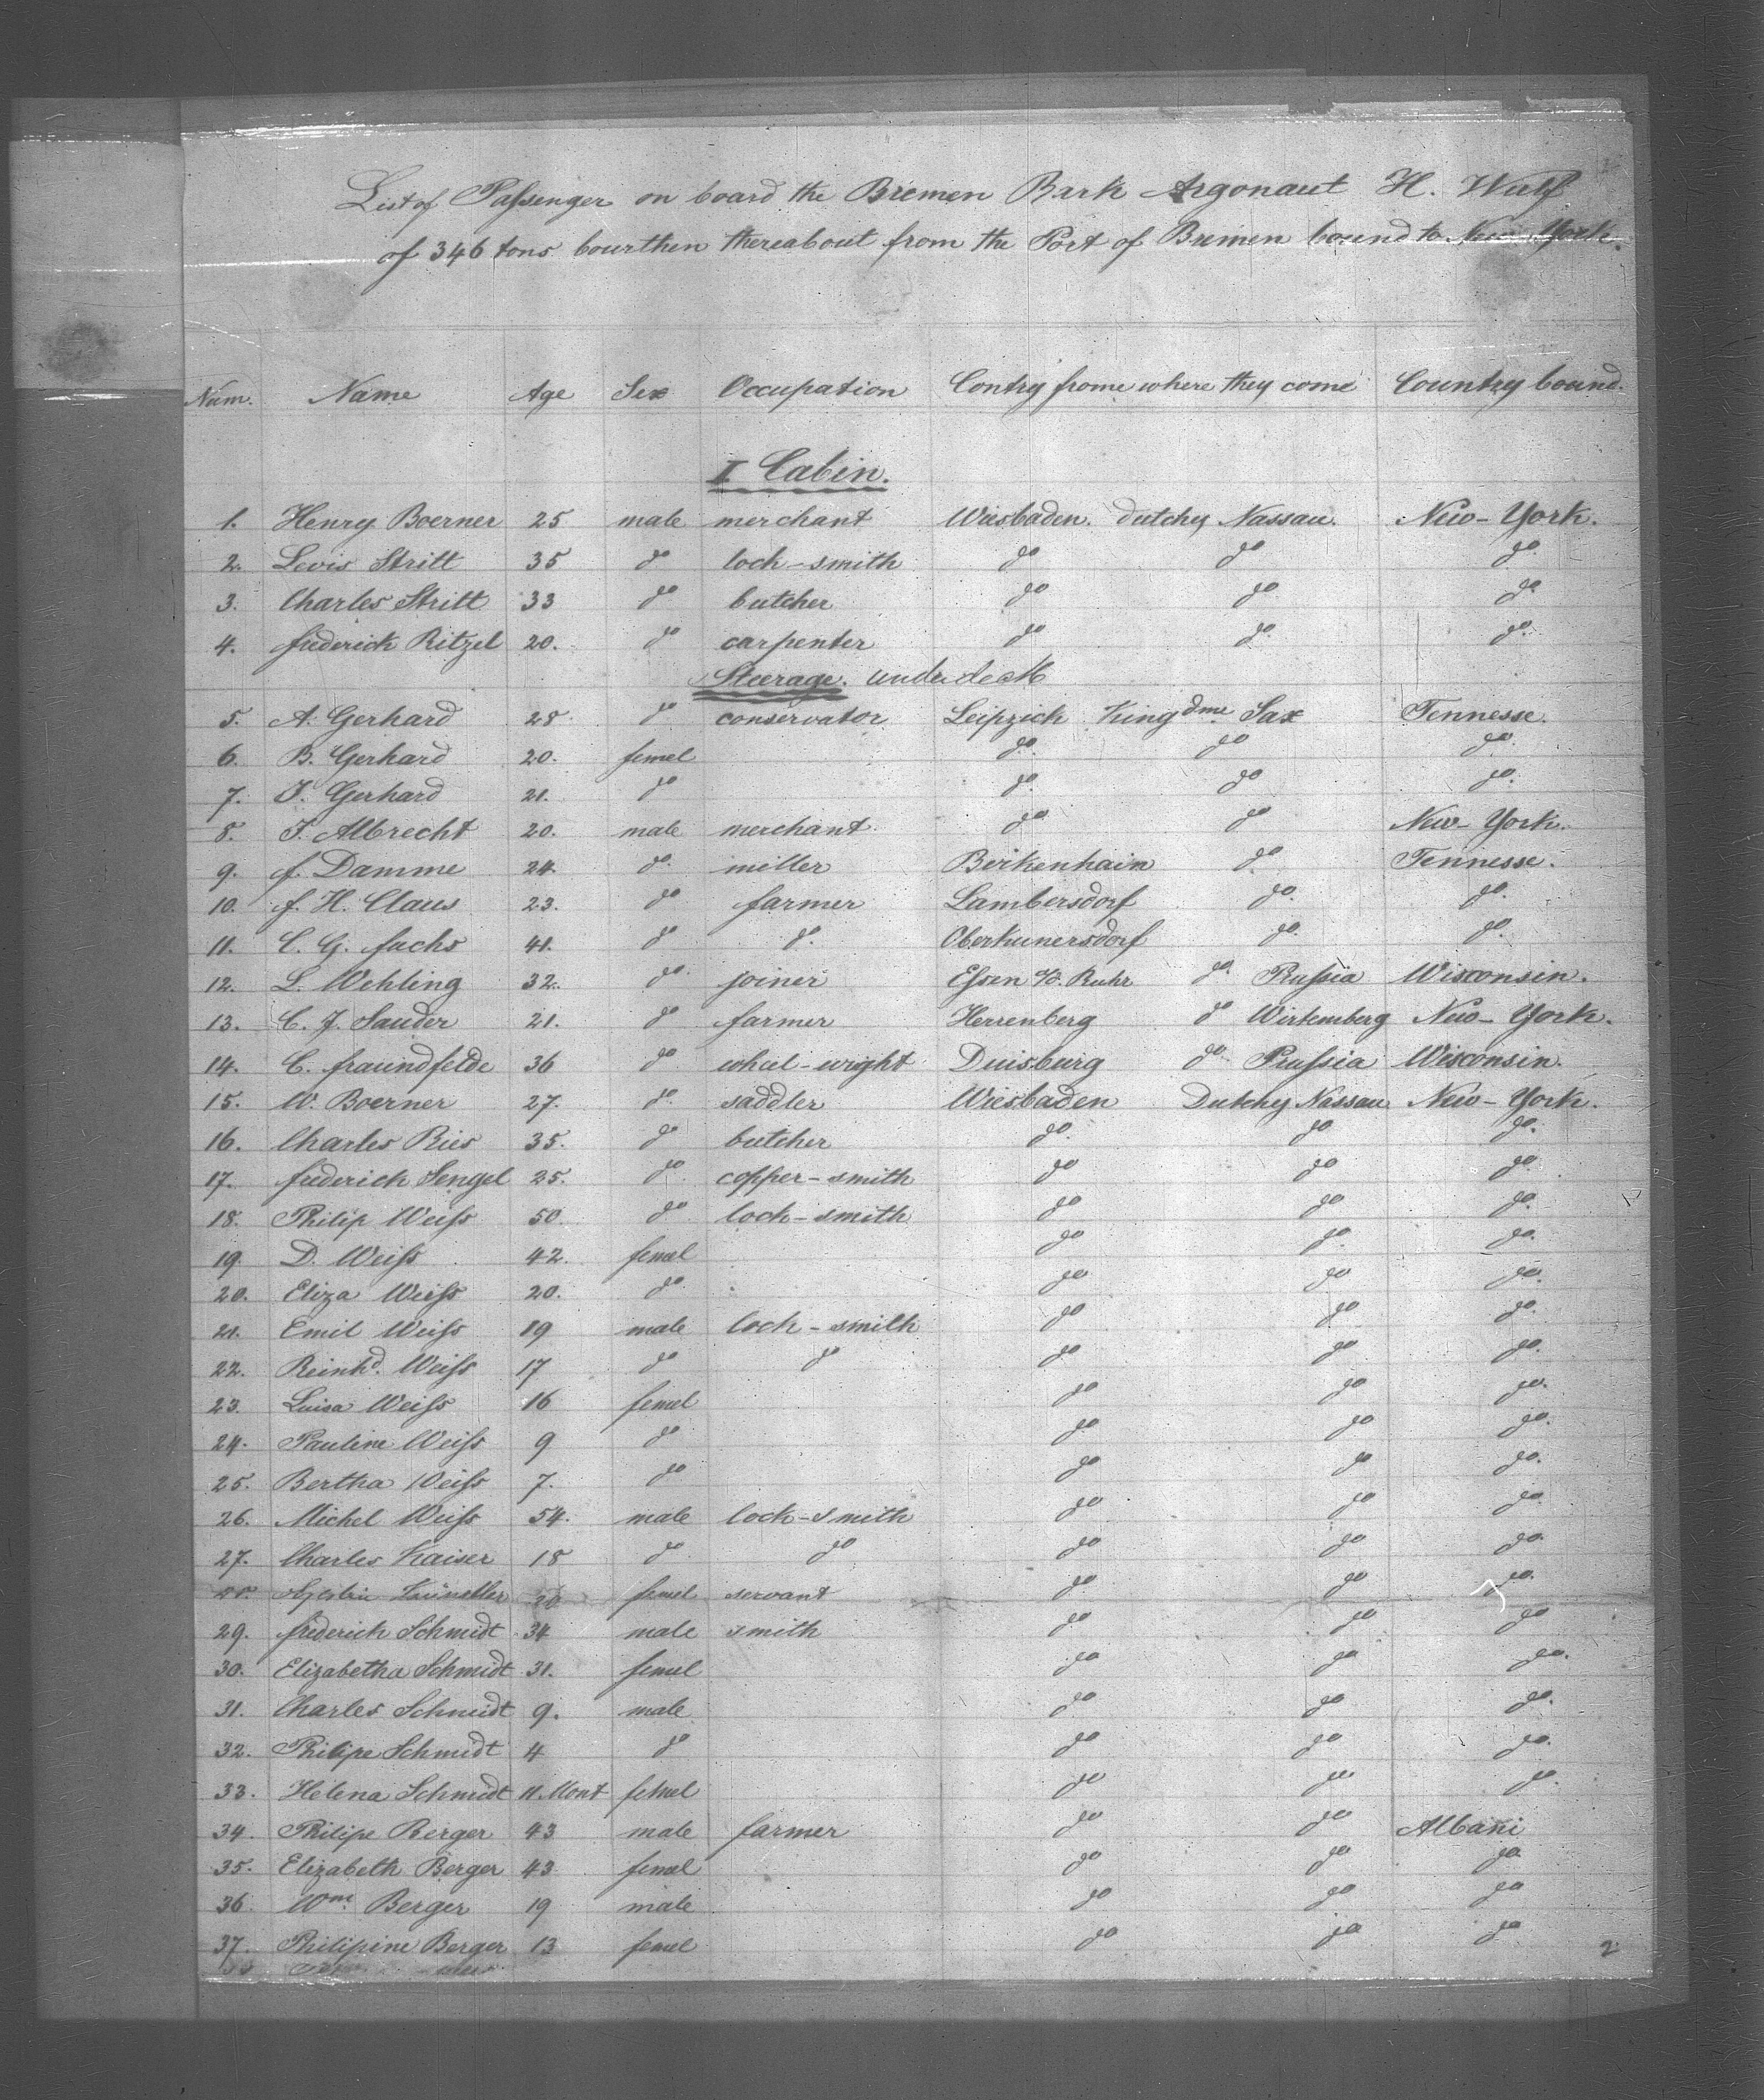 List of Passenger on board the Bremen Bark Argonaut H. Wulf
of 346 tons bourthen thereabout from the Port of Bremen bound to New York.
Num. Name Age Sex Occupation Contry frome where they come Country bound.
I Cabin.
1. Henry Boerner 25 male merchant Wiesbaden. dutchy Nassau. New-York.
2. Levis Stritt 35 do loch-smith do do do
3. Charles Stritt 33 do butcher do do do
4. frederich Ritzel 20. do carpenter do do. do.
Steerage. under deck
5. A. Gerhard 28 do conservator Leipzich Kingdme Sax Tennesse.
6. B. Gerhard 20. femel do. do do.
7. J. Gerhard 21. do do. do do.
8. J. Albrecht 20. male merchant. do do New-York.
9. f. Damme 24. do. miller Birkenhain do. Tennesse.
10. f. H. Claus 23. do farmer Lambersdorf do. do.
11. C. G. fuchs 41. do do. Oberkunersdorf do. do.
12. L. Wehling 32. do. joiner Eſsen a/d. Ruhr do. Pruſsia Wisconsin.
13. C. J. Sauder 21. do farmer Herrenberg do Wirtemberg New-York.
14. C. fraundfelde 36 do wheel-wright Duisburg do Pruſsia Wisconsin.
15. W. Boerner 27. do. saddler Wiesbaden Dutchy Nassau New-York.
16. Charles Ries 35. do butcher do. do do.
17. frederich Sengel 25. do copper-smith do do do.
18. Philip Weiſs 50. do loch-smith do do do.
19. D. Weiſs 42. femel do do. do.
20. Eliza Weiſs 20. do do do do.
21. Emil Weiſs 19 male loch-smith do do do.
22. Reinhd. Weiſs 17 do do do do do.
23. Luisa Weiſs 16 femel do do do.
24. Pauline Weiſs 9 do do do do.
25. Bertha Weiſs 7. do do do do.
26. Michel Weiſs 54. male lock-smith do do do
27. Charles Kaiser 18 do do do do do.
femel servant do do do.
29. frederich Schmidt 34 male smith do do do
30. Elizabetha Schmidt 31. femel do do do.
31. Charles Schmidt 9. male do do do.
32. Philipe Schmidt 4 do do do do.
33. Helena Schmidt 11. Mont femel do do do.
34. Philipe Berger 43 male farmer do do Albani
35. Elizabeth Berger 43 femel do do do
36. Wm. Berger 19 male do do do
37. Philipine Berger 13 femel do do do
2